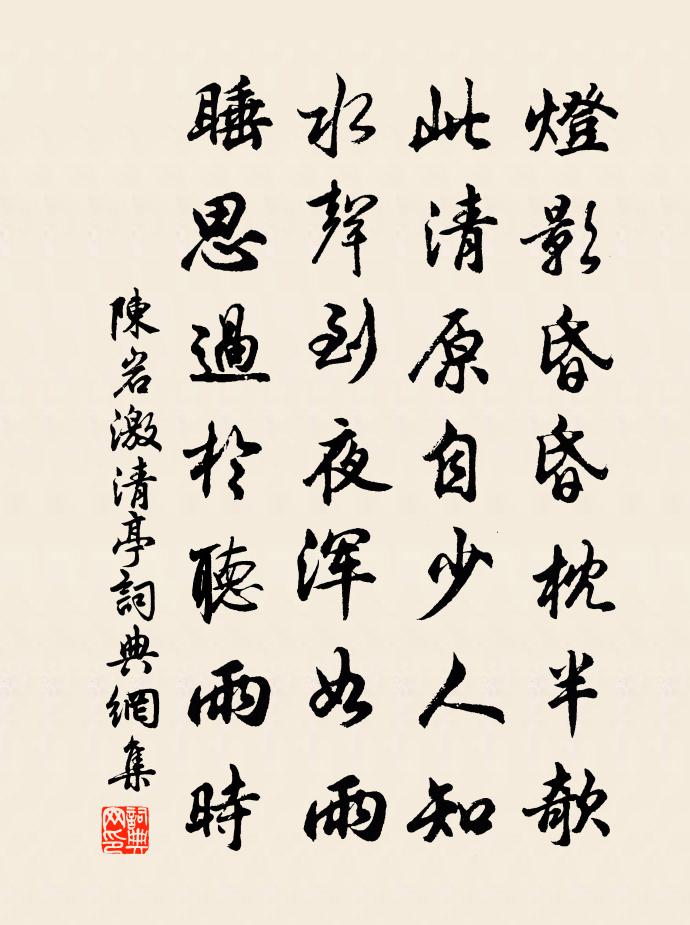 燈影昏昏枕半欹
此清原自少人知
水聲到夜浑如雨
睡思過於聽雨時
陳岩激清亭詞典網集
詞典网印